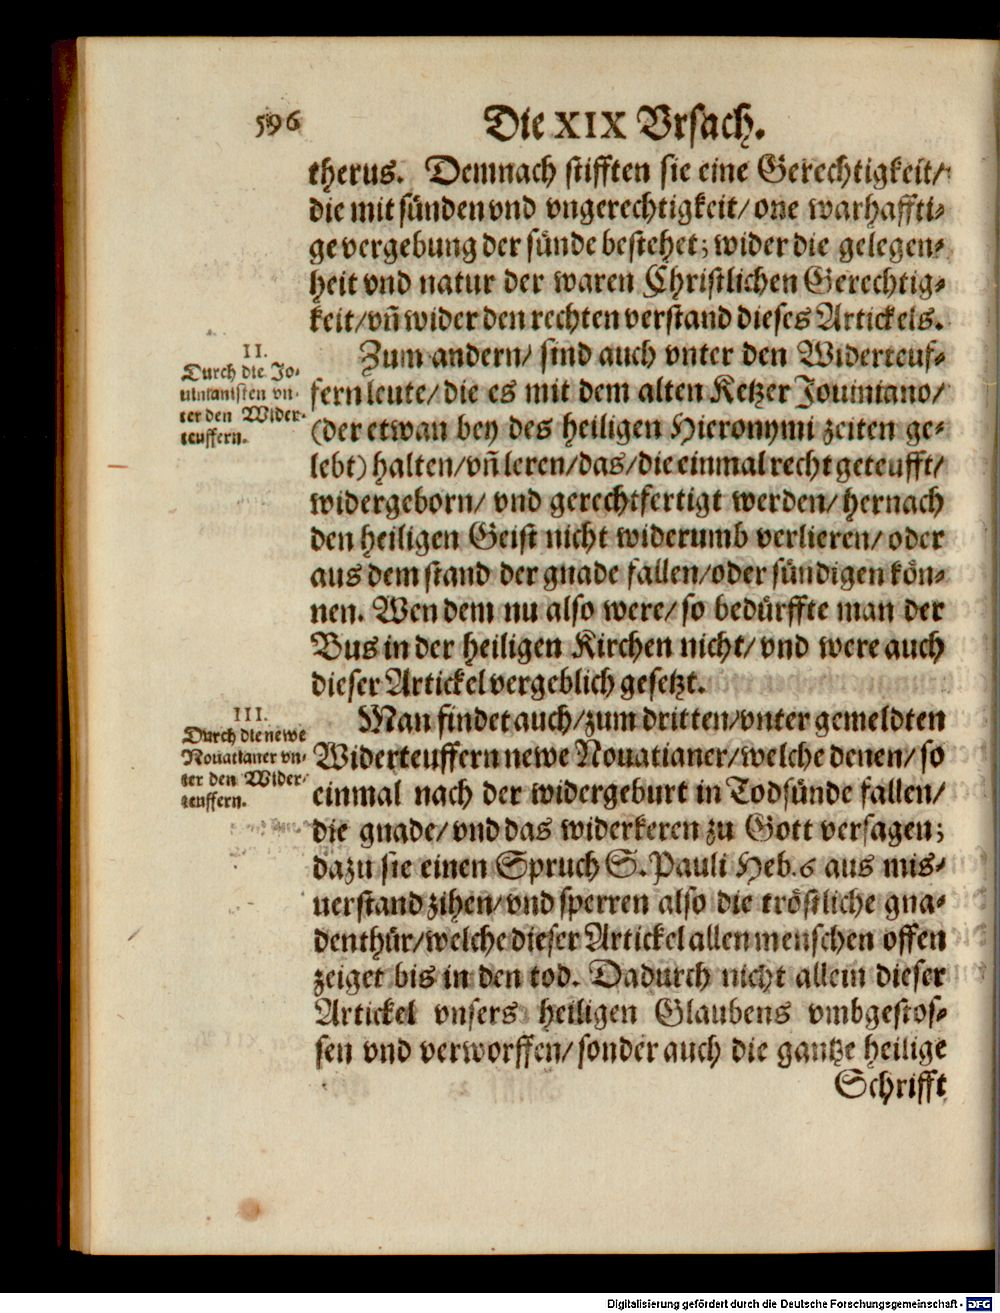 596
Die XIX Vrsach.
therus. Demnach stifften sie eine Gerechtigkeit/
die mit sünden vnd vngerechtigkeit/ one warhaffti-
ge vergebung der sünde bestehet; wider die gelegen-
heit vnd natur der waren Christlichen Gerechtig-
keit/ vñ wider den rechten verstand dieses Artickels.
II.
Durch die Jo-
uinianisten vn-
ter den Wider-
teuffern.
Zum andern/ sind auch vnter den Widerteuf-
fern leute/ die es mit dem alten Ketzer Jouiniano/
(der etwan bey des heiligen Hieronymi zeiten ge-
lebt) halten/ vñ leren/ das/ die einmal recht geteufft/
widergeborn/ vnd gerechtfertigt werden/ hernach
den heiligen Geist nicht widerumb verlieren/ oder
aus dem stand der gnade fallen/ oder sündigen kön-
nen. Wen dem nu also were/ so bedürffte man der
Bus in der heiligen Kirchen nicht/ vnd were auch
dieser Artickel vergeblich gesetzt.
III.
Durch die newe
Nouatianer vn-
ter den Wider-
teuffern.
Man findet auch/ zum dritten/ vnter gemeldten
Widerteuffern newe Nouatianer/ welche denen/ so
einmal nach der widergeburt in Todsünde fallen/
die gnade/ vnd das widerkeren zu Gott versagen;
dazu sie einen Spruch S. Pauli Heb. 6 aus mis-
uerstand zihen/ vnd sperren also die tröstliche gna-
denthür/ welche dieser Artickel allen menschen offen
zeiget bis in den tod. Dadurch nicht allein dieser
Artickel vnsers heiligen Glaubens vmbgestos-
sen vnd verworffen/ sonder auch die gantze heilige
Schrifft
Digitalisierung gefördert durch die Deutsche Forschungsgemeinschaft - DFG